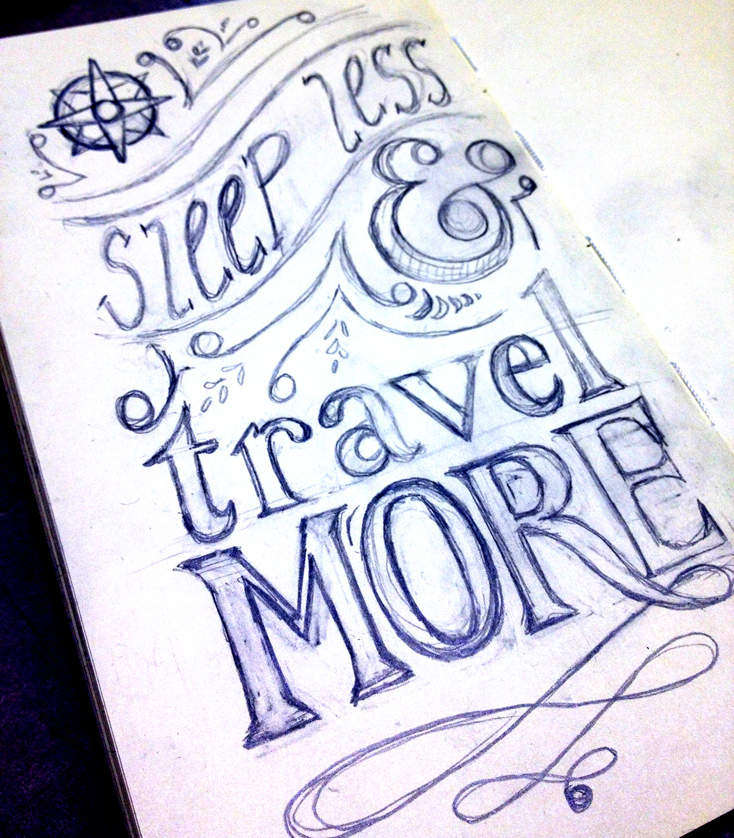 sleep less
&
travel
MORE